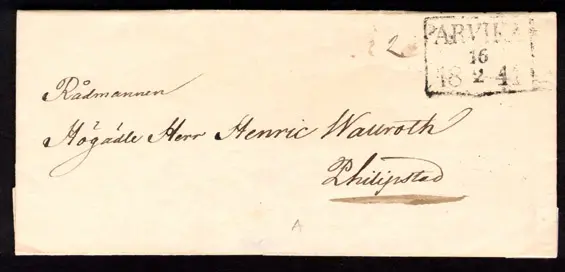 ARVIKA
16
18 2 41
2
Rådmannen
Högädle Herr Henric Wallroth
Philipstad
A